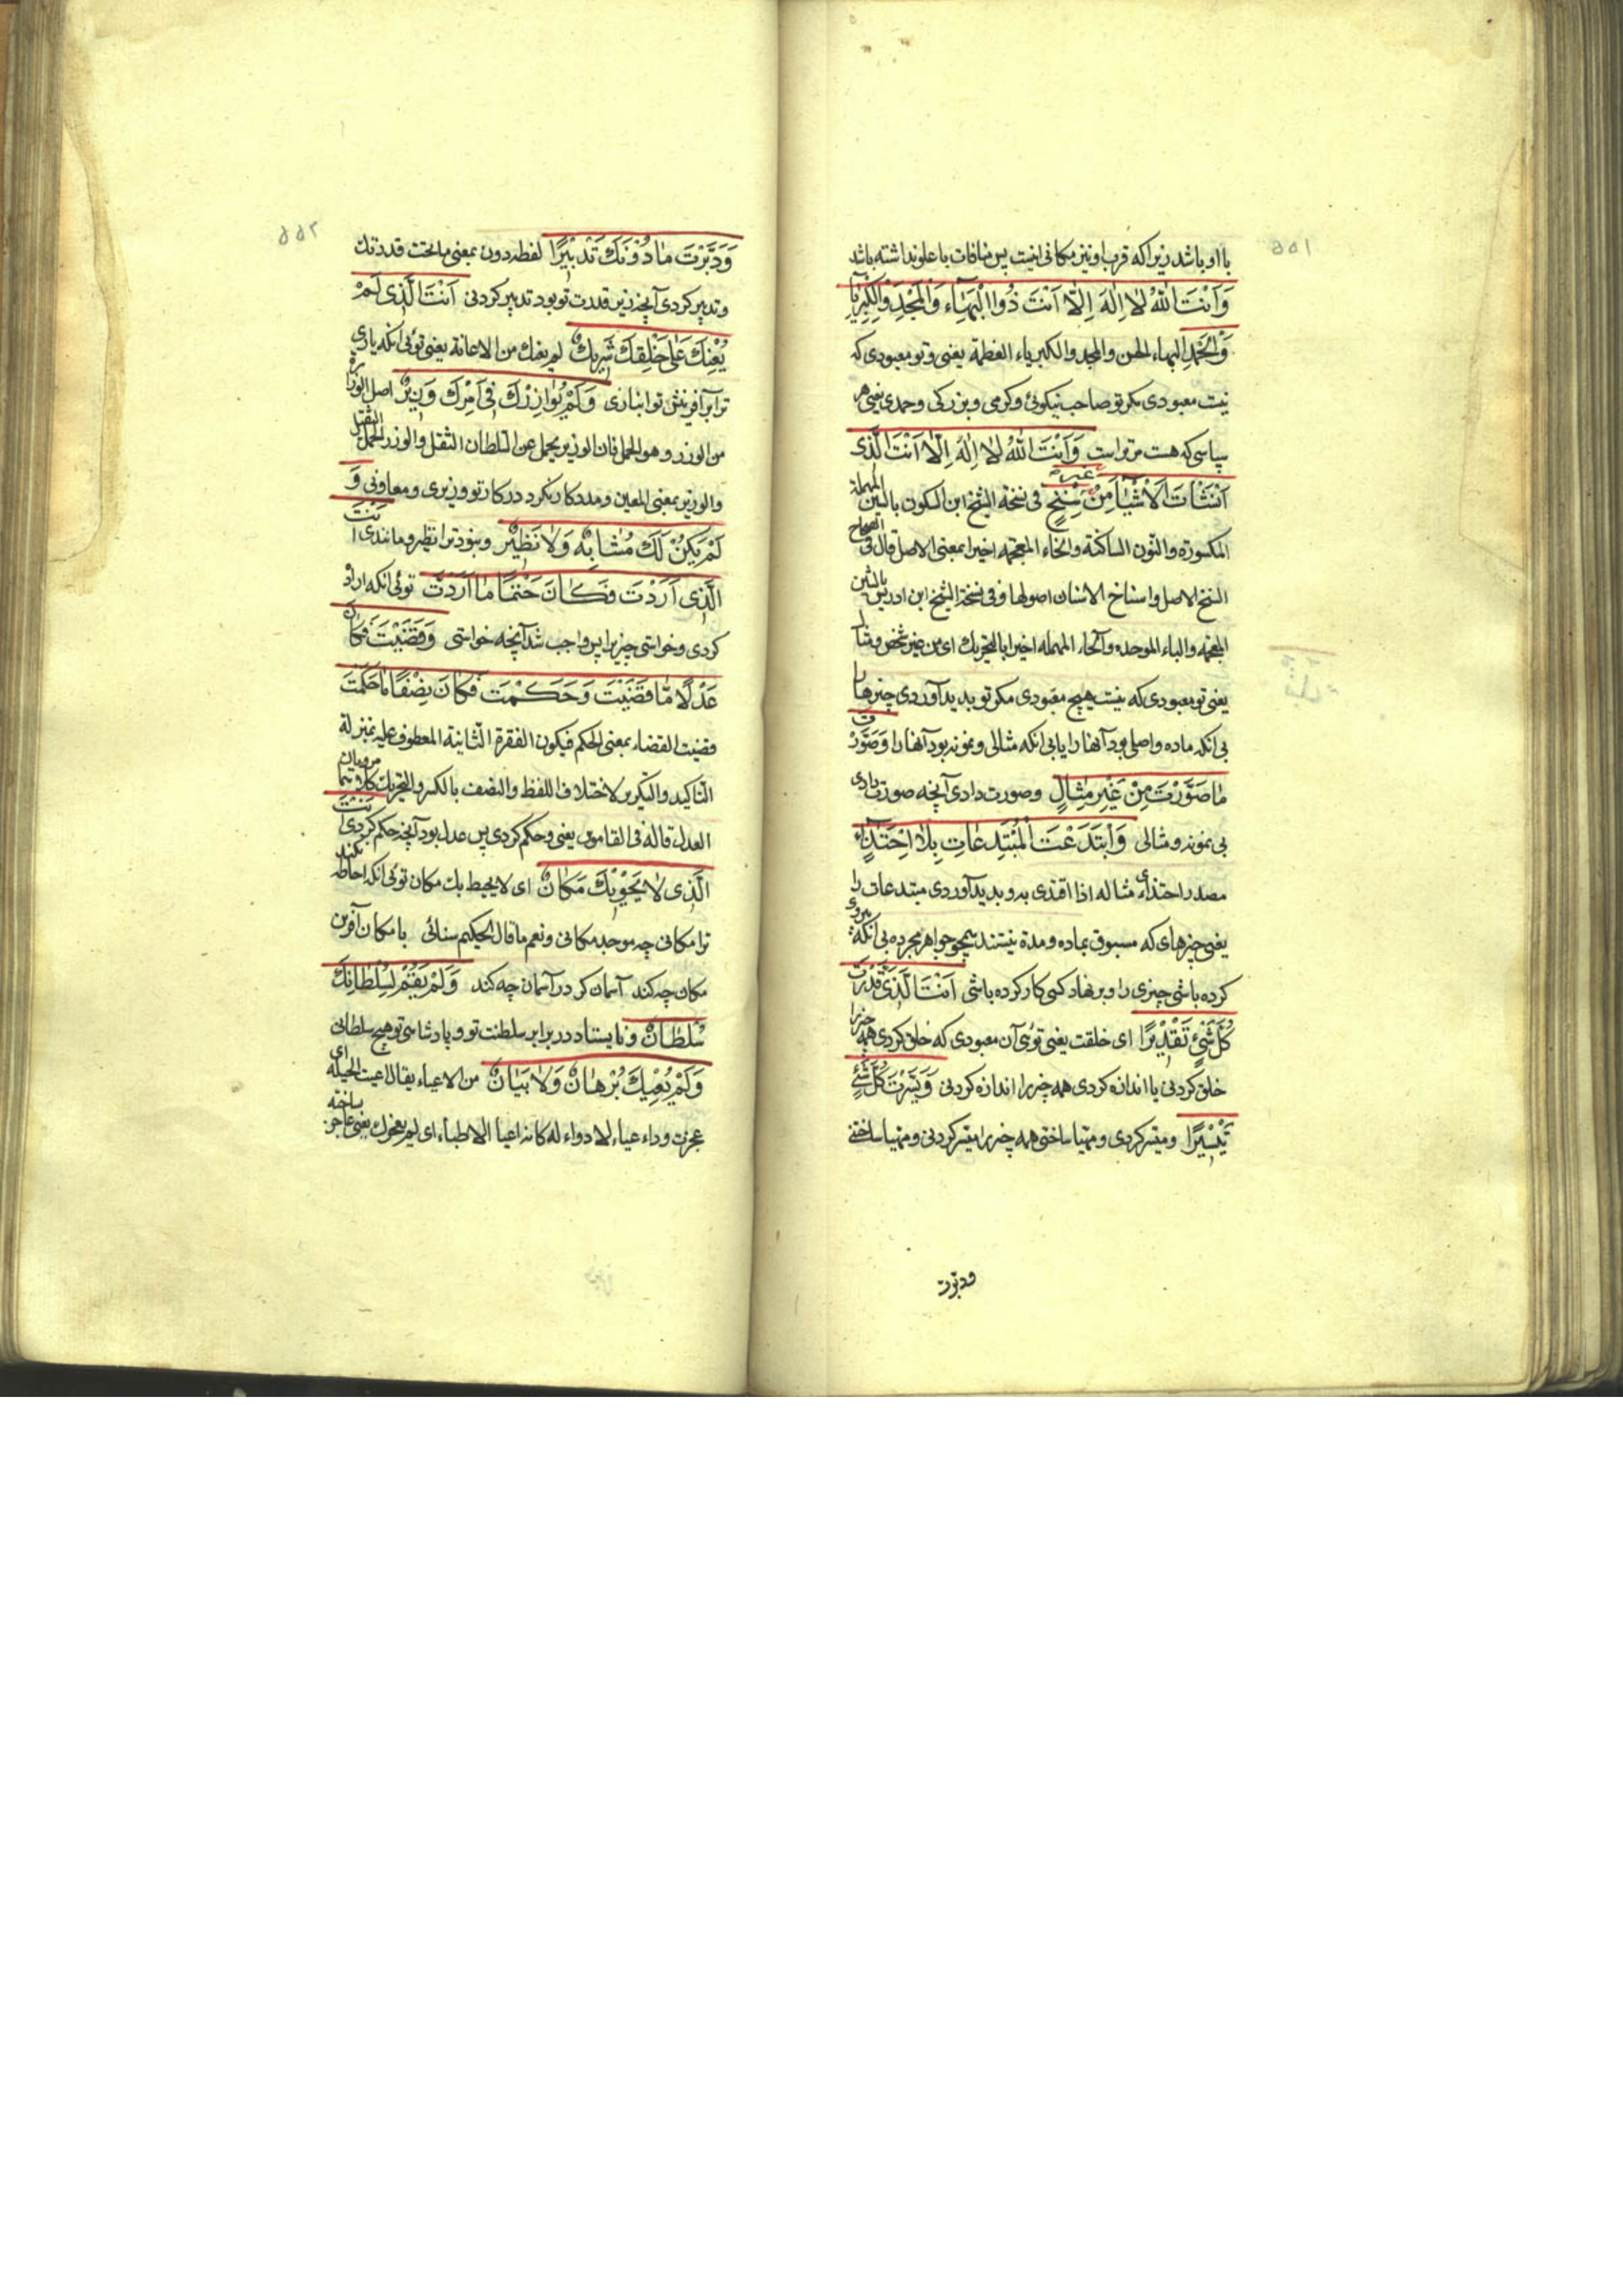 با او باشد زیرا که قرب او نیز مکانی نیست پس منافات با علو نداشته باشد
وَاَنْتَ اللّٰهُ لٰا اِلٰهَ اِلّٰا اَنْتَ ذُوا الْبَهٰاءِ وَالْمَجْدِ وَالْكِبْرِيٰاءِ
وَالْحَمْدِ البهاء الحسن والمجد والكبرياء العظمة یعنی و تو معبودی که
نیست معبودی مکر تو صاحب نیکوئی و کرمی و بزرکی و حمدی یعنی هر
سپاسی که هست مر تو راست وَاَنْتَ اللّٰهُ لٰا اِلٰهَ اِلّٰا اَنْتَ الَّذى
اَنْشَأْتَ الْاَشْيٰاءَ مِنْ غير سِنْخٍ فى نسخة الشيخ ابن السكون بالسين المهملة
المكسورة والنون الساكنة والخاء المعجمة اخيرا بمعنى الاصل قال فى الصحاح
السنخ الاصل واسناخ الاسنان اصولها وفى نسخة الشيخ ابن ادريس بالشين
المعجمه والباء الموحده والحاء المهمله اخيرا بالتحريك اى من غير شخص ومثال
یعنی تو معبودی که نیست هیچ معبودی مکر تو پدید آوردی چیزها را
بی انکه ماده و اصلی بود آنها را یا بی انکه مثالی و نمونه بود آنها را وَصَوَّرْتَ
مٰا صَوَّرْتَ مِنْ غَيْرِ مِثٰالٍ و صورت دادی آنچه صورت دادی
بی نمونه و مثالی وَابْتَدَعْتَ الْمُبْتَدِعٰاتِ بِلٰا احْتِذٰاءٍ
مصدر احتذاى مثاله اذا اقتدى به و پدید آوردی مبتدعات را
یعنی چیزهای که مسبوق بماده و مدة نیستند همچو جواهر مجرده بی انکه پیروی
کرده باشی چیزی را و بر نهاد کسی کار کرده باشی اَنْتَ الَّذى قَدَّرْتَ
كُلَّ شَيْءٍ تَقْديرًا اى خلقت یعنی توئی آن معبودی که خلق کردی همه چیز را
خلق کردنی یا اندازه کردی همه چیز را اندازه کردنی وَيَسَّرْتَ كُلَّ شَيْءٍ
تَيْسيرًا و میسر کردی و مهیا ساختی همه چیز را میسر کردنی و مهیا ساختنی
ودبّرت
وَدَبَّرْتَ مٰا دُونَكَ تَدْبيرًا لفظه دون بمعنى ما تحت قدرتك
و تدبیر کردی آنچه زیر قدرت تو بود تدبیر کردنی اَنْتَ الَّذى لَمْ
يُعِنْكَ عَلىٰ خَلْقِكَ شَريكٌ لم يعنك من الاعانة یعنی توئی انکه یاری
ترا بر آفرینش تو انبازی وَلَمْ يُوٰازِرْكَ فى اَمْرِكَ وَزيرٌ اصل الوزارة
من الوزر وهو الحمل فان الوزير يحمل عن السلطان الثقل والوزر الحمل الثقيل
والوزير بمعنى المعين و مددکار نکرد در کار تو وزیری و معاونی وَ
لَمْ يَكُنْ لَكَ مُشٰابِهٌ وَلٰا نَظيرٌ و نبود ترا نظیر و مانندی اَنْتَ
الَّذى اَرَدْتَ فَكٰانَ حَتْمًا مٰا اَرَدْتَ توئی انکه اراده
کردی و خواستی چیز را پس واجب شد آنچه خواستی وَقَضَيْتَ فَكٰانَ
عَدْلًا مٰا قَضَيْتَ وَحَكَمْتَ فَكٰانَ نِصْفًا مٰا حَكَمْتَ
قضيت القضاء بمعنى الحكم فيكون الفقرة الثانية المعطوف عليه بمنزلة
التاكيد والتكرير لاختلاف اللفظ والنصف بالكسر والتحريك كلاهما مرويان
العدل قاله فى القاموس یعنی و حکم کردی پس عدل بود آنچه حکم کردی اَنْتَ
الَّذى لٰا يَحْويكَ مَكٰانٌ اى لا يحيط بك مكان توئی انکه احاطه نکند
ترا مکانی چه موجد مکانی ونعم ما قال الحكيم سنائى با مکان آفرین
مکان چه کند آسمان کر در آسمان چه کند وَلَمْ يَقُمْ لِسُلْطٰانِكَ
سُلْطٰانٌ و نایستاد در برابر سلطنت تو و پادشاسی تو هیچ سلطانی
وَلَمْ يُعْيِكَ بُرْهٰانٌ وَلٰا بَيٰانٌ من الاعياء يقال اعيت الحيله اى
عجزت وداء عياء لا دواء له كانه اعيا الاطباء اى لم يعجزك یعنی عاجز نساخته